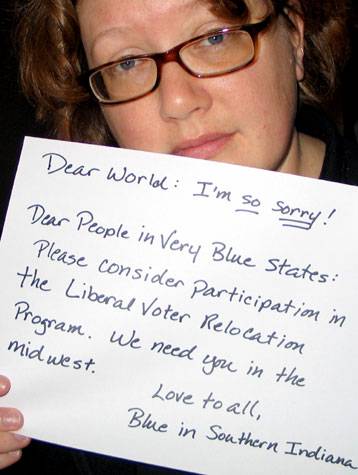 Dear World: I'm so sorry!
Dear People in Very Blue States:
Please consider participation in
the Liberal Voter Relocation
Program. We need you in the
midwest.
Love to all,
Blue in Southern Indiana